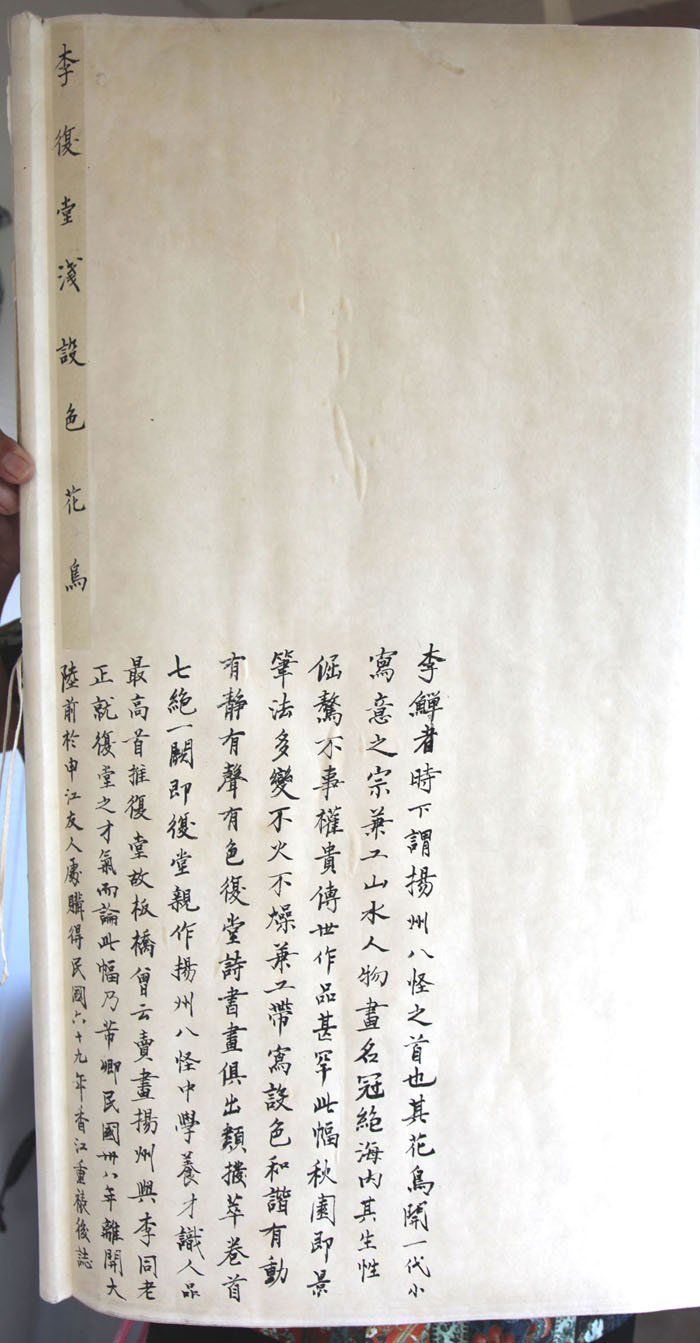 李鱓者時下謂揚州八怪之首也其花鳥開一代小
寫意之宗兼工山水人物畫名冠絶海内其生性
倔驁不事權貴傳世作品甚罕此幅秋園即景
筆法多變不火不燥兼工帶寫設色和諧有動
有静有聲有色復堂詩書畫俱出類拔萃卷首
七絶一闋即復堂親作揚州八怪中學養才識人品
最高首推復堂故板橋曾云賣畫揚州與李同老
正就復堂之才氣而論此幅乃芾卿民國卅八年離開大
陸前於申江友人處購得民國六十九年香江重裱後誌
李復堂淺設色花鳥